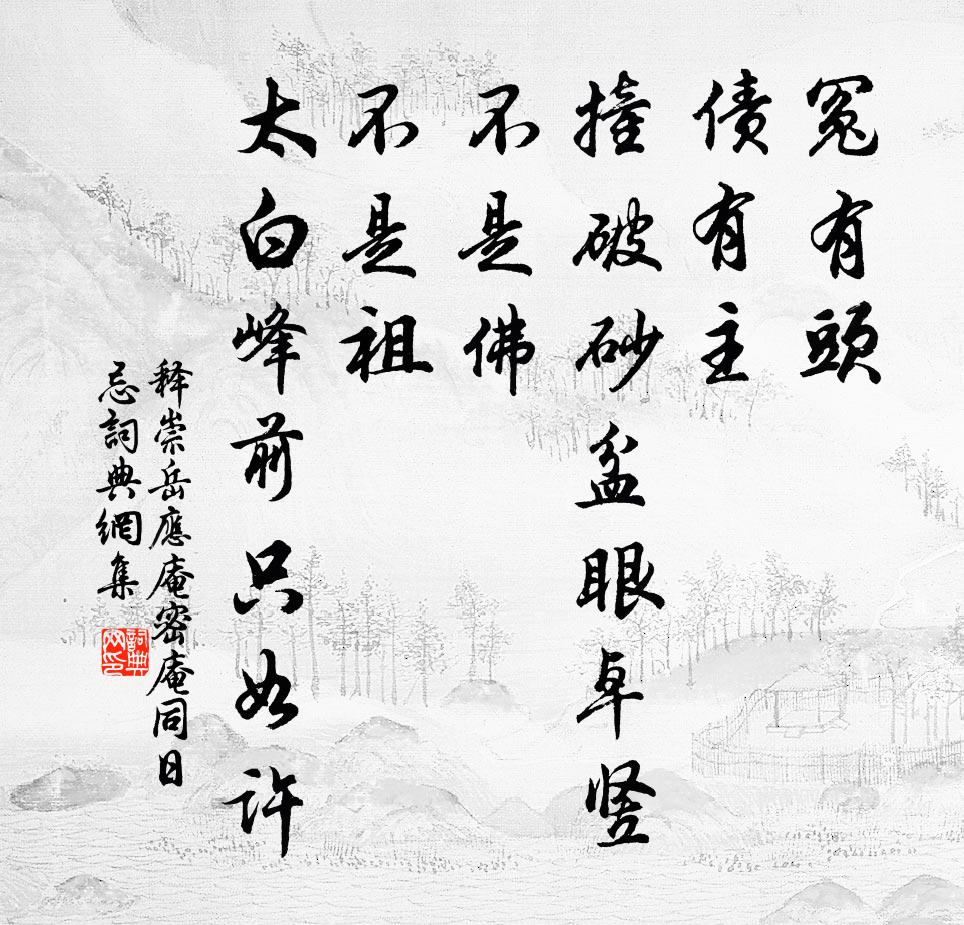 冤有頭
债有主
撞破砂盆眼卓竖
不是佛
不是祖
太白峰前只如许
释崇岳應庵密庵同日
忌詞典網集
詞典
网印